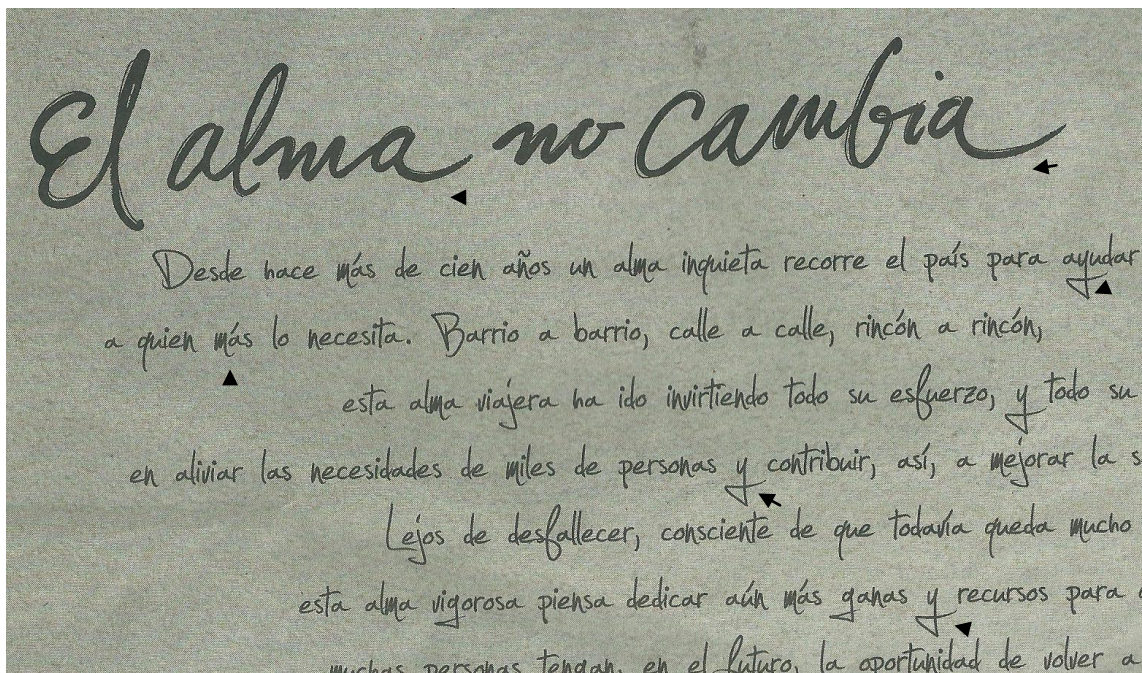 El alma no cambia
Desde hace más de cien años un alma inquieta recorre el país para ayudar
a quien más lo necesita. Barrio a barrio, calle a calle, rincón a rincón,
esta alma viajera ha ido invirtiendo todo su esfuerzo, y todo su
en aliviar las necesidades de miles de personas y contribuir, así, a mejorar la s
Lejos de desfallecer, consciente de que todavía queda mucho
esta alma vigorosa piensa dedicar aún más ganas y recursos para
muchas personas tengan, en el futuro, la oportunidad de volver a